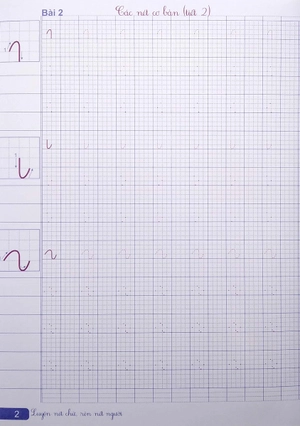 Bài 2
Các nét cơ bản (tiết 2)
2
Luyện nét chữ, rèn nết người